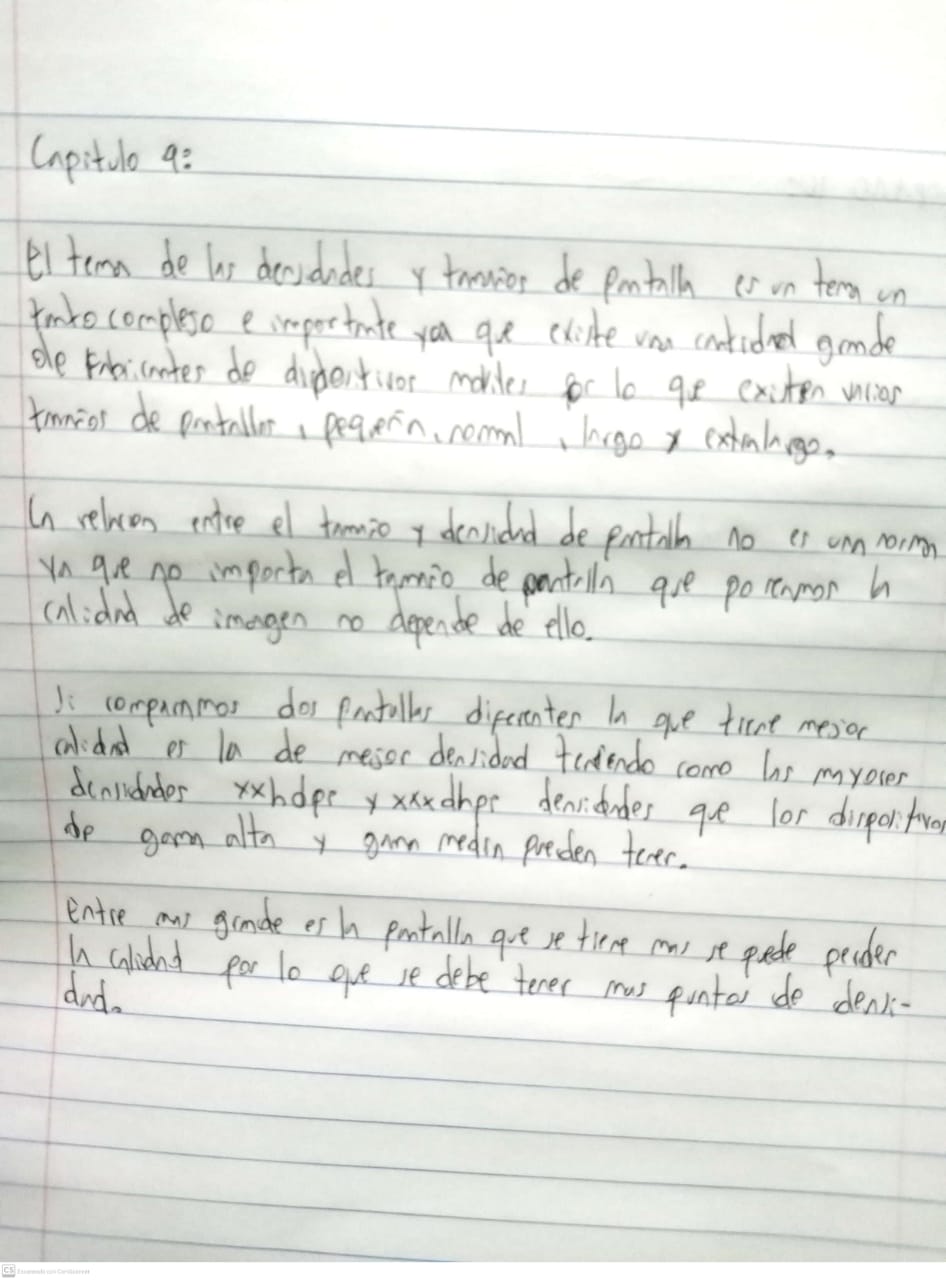 Capitulo 9:
El tema de las densidades y tamaños de pantalla es un tema un
tanto complejo e importante ya que existe una cantidad grande
de fabricantes de dispositivos moviles por lo que existen varios
tamaños de pantallas, pequeña, normal, largo y extralargo.
La relacion entre el tamaño y densidad de pantalla no es una norma
ya que no importa el tamaño de pantalla que poseamos la
calidad de imagen no depende de ello.
Si comparamos dos pantallas diferentes la que tiene mejor
calidad es la de mejor densidad teniendo como las mayores
densidades xxhdps y xxxdhps densidades que los dispositivos
de gama alta y gama media pueden tener.
Entre mas grande es la pantalla que se tiene mas se puede perder
la calidad por lo que se debe tener mas puntos de densi-
dad.
CS Escaneado con CamScanner